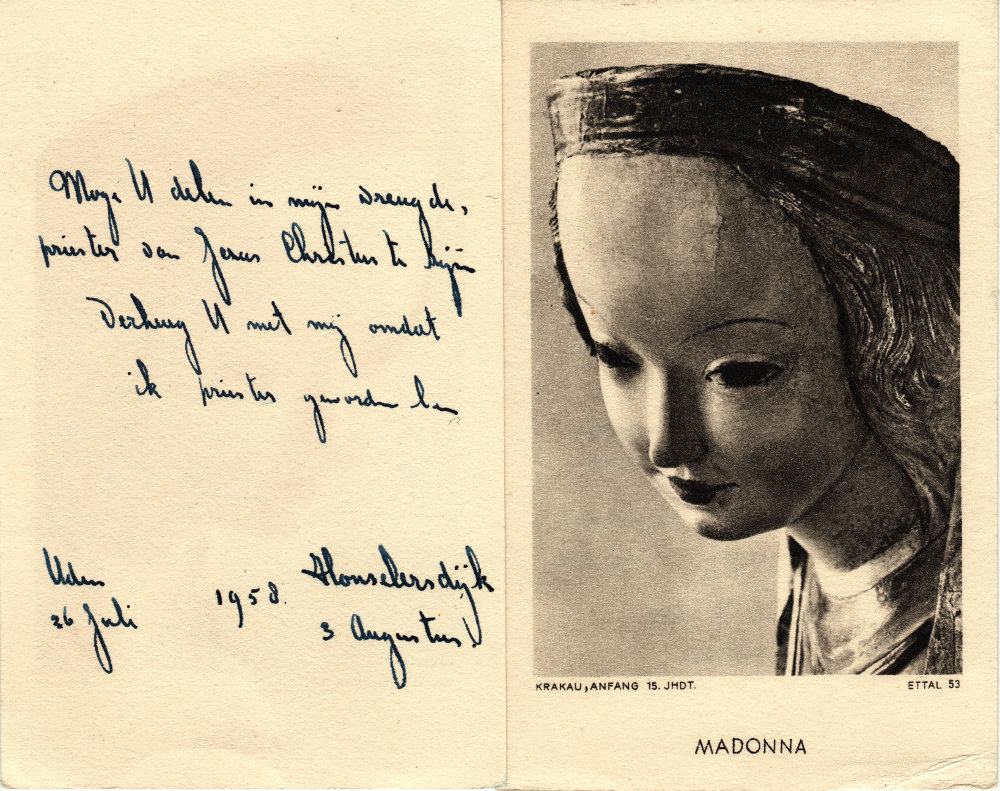 Moge U delen in mijn vreugde,
priester van Jezus Christus te zijn
Verheug U met mij omdat
ik priester geworden ben
Uden 1958. Honselersdijk
26 Juli 3 Augustus!
KRAKAU, ANFANG 15. JHDT. ETTAL 53
MADONNA